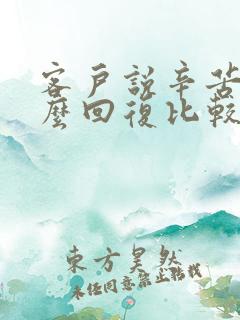 客戶說辛苦
麼回復比較
東方昊然
未經同意禁止轉載